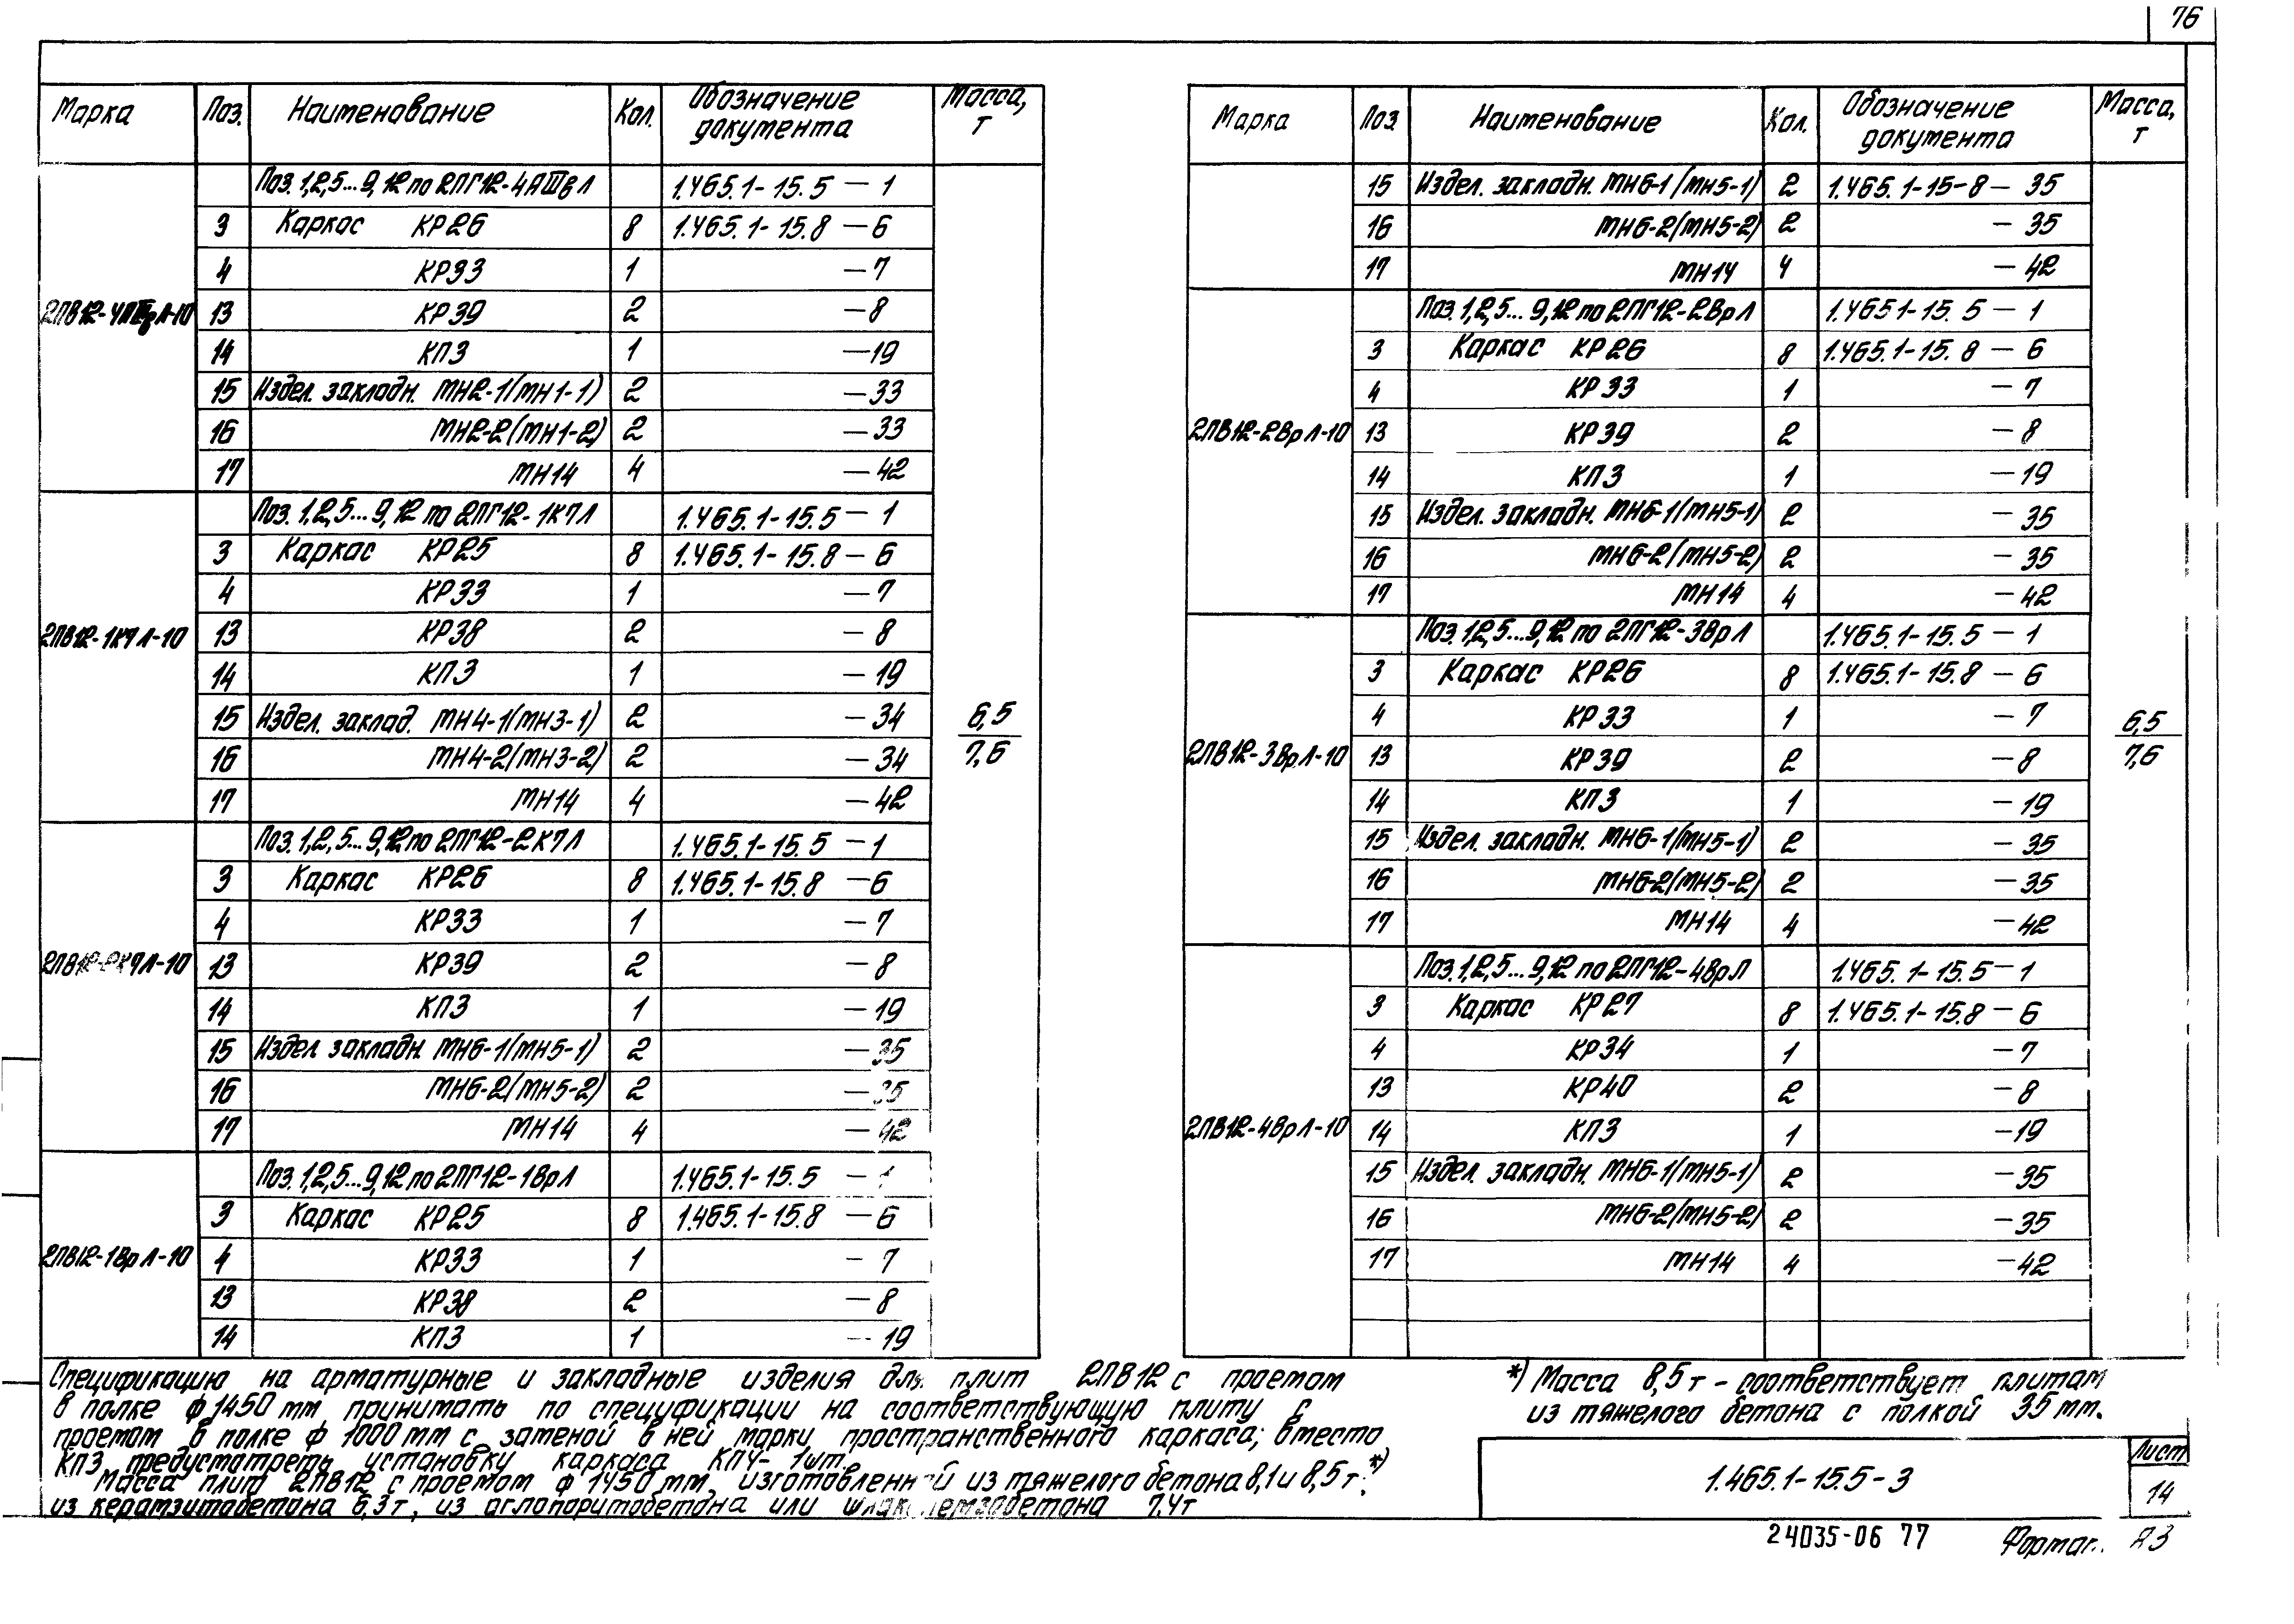 76
Марка Поз. Наименование Кол. Обозначение документа Масса, т
Поз. 1,2,5...9,12 по 2ПГ12-4АШвЛ 1.465.1-15.5 — 1
3 Каркас КР26 8 1.465.1-15.8 — 6
4 КР33 1 — 7
2ПВ12-4АШвЛ-10 13 КР39 2 — 8
14 КП3 1 — 19
15 Издел. закладн. МН2-1(МН1-1) 2 — 33
16 МН2-2(МН1-2) 2 — 33
17 МН14 4 — 42
Поз. 1,2,5...9,12 по 2ПГ12-1К7Л 1.465.1-15.5 — 1
3 Каркас КР25 8 1.465.1-15.8 — 6
4 КР33 1 — 7
2ПВ12-1К7Л-10 13 КР38 2 — 8
14 КП3 1 — 19
15 Издел. заклад. МН4-1(МН3-1) 2 — 34
16 МН4-2(МН3-2) 2 — 34
6,5
7,6
17 МН14 4 — 42
Поз. 1,2,5...9,12 по 2ПГ12-2К7Л 1.465.1-15.5 — 1
3 Каркас КР26 8 1.465.1-15.8 — 6
4 КР33 1 — 7
2ПВ12-2К7Л-10 13 КР39 2 — 8
14 КП3 1 — 19
15 Издел закладн. МН6-1(МН5-1) 2 — 35
16 МН6-2(МН5-2) 2 — 35
17 МН14 4 — 42
Поз. 1,2,5...9,12 по 2ПГ12-1ВрЛ 1.465.1-15.5 — 1
3 Каркас КР25 8 1.465.1-15.8 — 6
2ПВ12-1ВрЛ-10 4 КР33 1 — 7
13 КР38 2 — 8
14 КП3 1 — 19
Марка Поз. Наименование Кол. Обозначение документа Масса, т
15 Издел. закладн. МН6-1(МН5-1) 2 1.465.1-15-8 — 35
16 МН6-2(МН5-2) 2 — 35
17 МН14 4 — 42
Поз. 1,2,5...9,12 по 2ПГ12-2ВрЛ 1.465.1-15.5 — 1
3 Каркас КР26 8 1.465.1-15.8 — 6
4 КР33 1 — 7
2ПВ12-2ВрЛ-10 13 КР39 2 — 8
14 КП3 1 — 19
15 Издел. закладн. МН6-1(МН5-1) 2 — 35
16 МН6-2(МН5-2) 2 — 35
17 МН14 4 — 42
Поз. 1,2,5...9,12 по 2ПГ12-3ВрЛ 1.465.1-15.5 — 1
3 Каркас КР26 8 1.465.1-15.8 — 6
4 КР33 1 — 7
6,5
7,6
2ПВ12-3ВрЛ-10 13 КР39 2 — 8
14 КП3 1 — 19
15 Издел. закладн. МН6-1(МН5-1) 2 — 35
16 МН6-2(МН5-2) 2 — 35
17 МН14 4 — 42
Поз. 1,2,5...9,12 по 2ПГ12-4ВрЛ 1.465.1-15.5 — 1
3 Каркас КР27 8 1.465.1-15.8 — 6
4 КР34 1 — 7
13 КР40 2 — 8
2ПВ12-4ВрЛ-10 14 КП3 1 — 19
15 Издел. закладн. МН6-1(МН5-1) 2 — 35
16 МН6-2(МН5-2) 2 — 35
17 МН14 4 — 42
Спецификацию на арматурные и закладные изделия для плит 2ПВ12 с проемом
в полке ф 1450 мм принимать по спецификации на соответствующую плиту с
проемом в полке ф 1000 мм с заменой в ней марки пространственного каркаса; вместо
КП3 предусмотреть установку каркаса КП4 - 1 шт.
Масса плит 2ПВ12 с проемом ф 1450 мм, изготовленной из тяжелого бетона 8,1 и 8,5 т*),
из керамзитобетона 6,3 т, из аглопоритобетона или шлакопемзобетона 7,4 т
*) Масса 8,5 т - соответствует плитам
из тяжелого бетона с полкой 35 мм.
1.465.1-15.5-3
Лист
14
24035-06 77
Формат А3